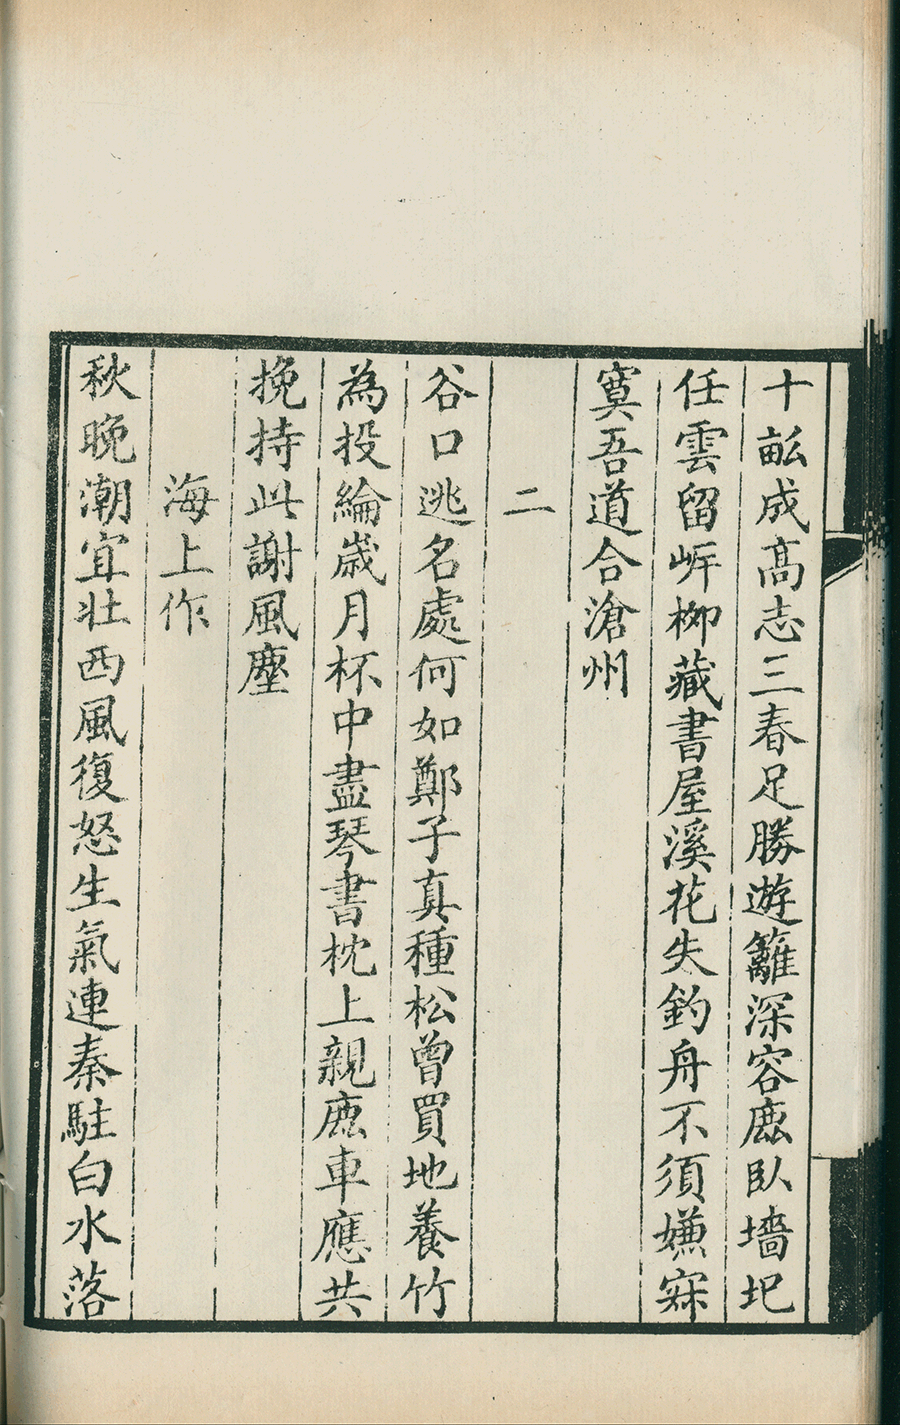 十畆成髙志三春足勝遊籬深容鹿臥墻圯
任雲留㟁栁藏書屋溪花失釣舟不須嫌寐
寞吾道合滄州
二
谷口逃名處何如鄭子真種松曾買地養竹
為投綸歲月杯中盡琴書枕上親鹿車應共
挽持此謝風塵
海上作
秋晚潮宜壯西風復怒生氣連秦駐白水落